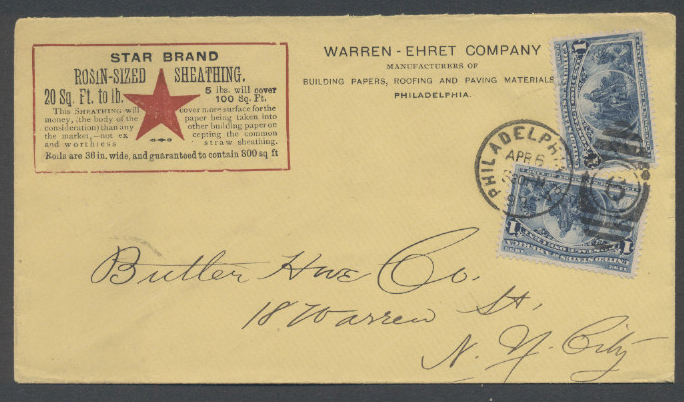 STAR BRAND
ROSIN-SIZED SHEATHING.
20 Sq. Ft. to lb. 5 lbs. will cover
100 Sq. Ft.
This SHEATHING will cover more surface for the
money, (the body of the paper being taken into
consideration) than any other building paper on
the market,—not ex cepting the common
and worthless straw sheathing.
Rolls are 36 in. wide, and guaranteed to contain 800 sq ft
WARREN-EHRET COMPANY
MANUFACTURERS OF
BUILDING PAPERS, ROOFING AND PAVING MATERIALS
PHILADELPHIA.
PHILADELPHIA
APR 6
1
1 1
Butler Hwe Co.
18 Warren St.
N. Y. City